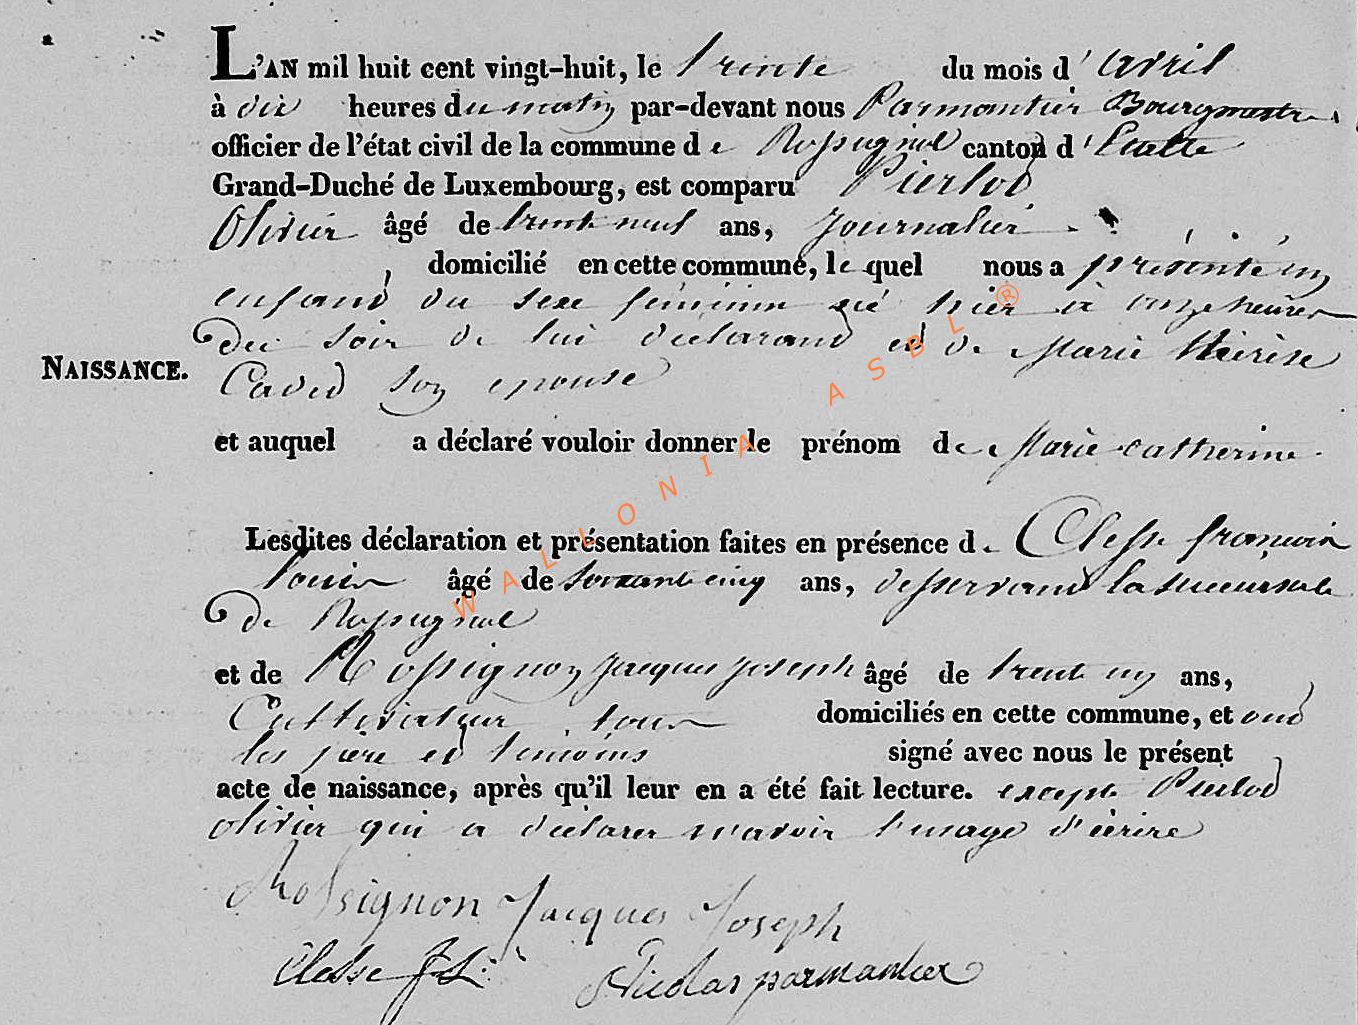 L'AN mil huit cent vingt-huit, le trente du mois d'avril
à dix heures du matin par-devant nous Parmantier Bourgmestre,
officier de l'état civil de la commune de Rossignol canton d'Etalle
Grand-Duché de Luxembourg, est comparu Pierlod
Olivier âgé de trente neuf ans, journalier
domicilié en cette commune, lequel nous a présenté un
enfand du sexe féminin né hier à onze heures
du soir de lui déclarand ed de Marie thérèse
NAISSANCE.
Caded son epouse
et auquel a déclaré vouloir donner le prénom de Marie catherine
Lesdites déclaration et présentation faites en présence de Clesse françois
louis âgé de soixante cinq ans, desservand la succursale
de Rossignol
et de Rossignon jacques joseph âgé de trente un ans,
Cultivateur tous domiciliés en cette commune, et ond
les père ed témoins signé avec nous le présent
acte de naissance, après qu'il leur en a été fait lecture. excepte Pierlod
olivier qui a déclarer n'avoir l'usage d'écrire
Rossignon Jacques Joseph
Clesse f. L. Nicolas parmantier
WALLONIA ASBL ®